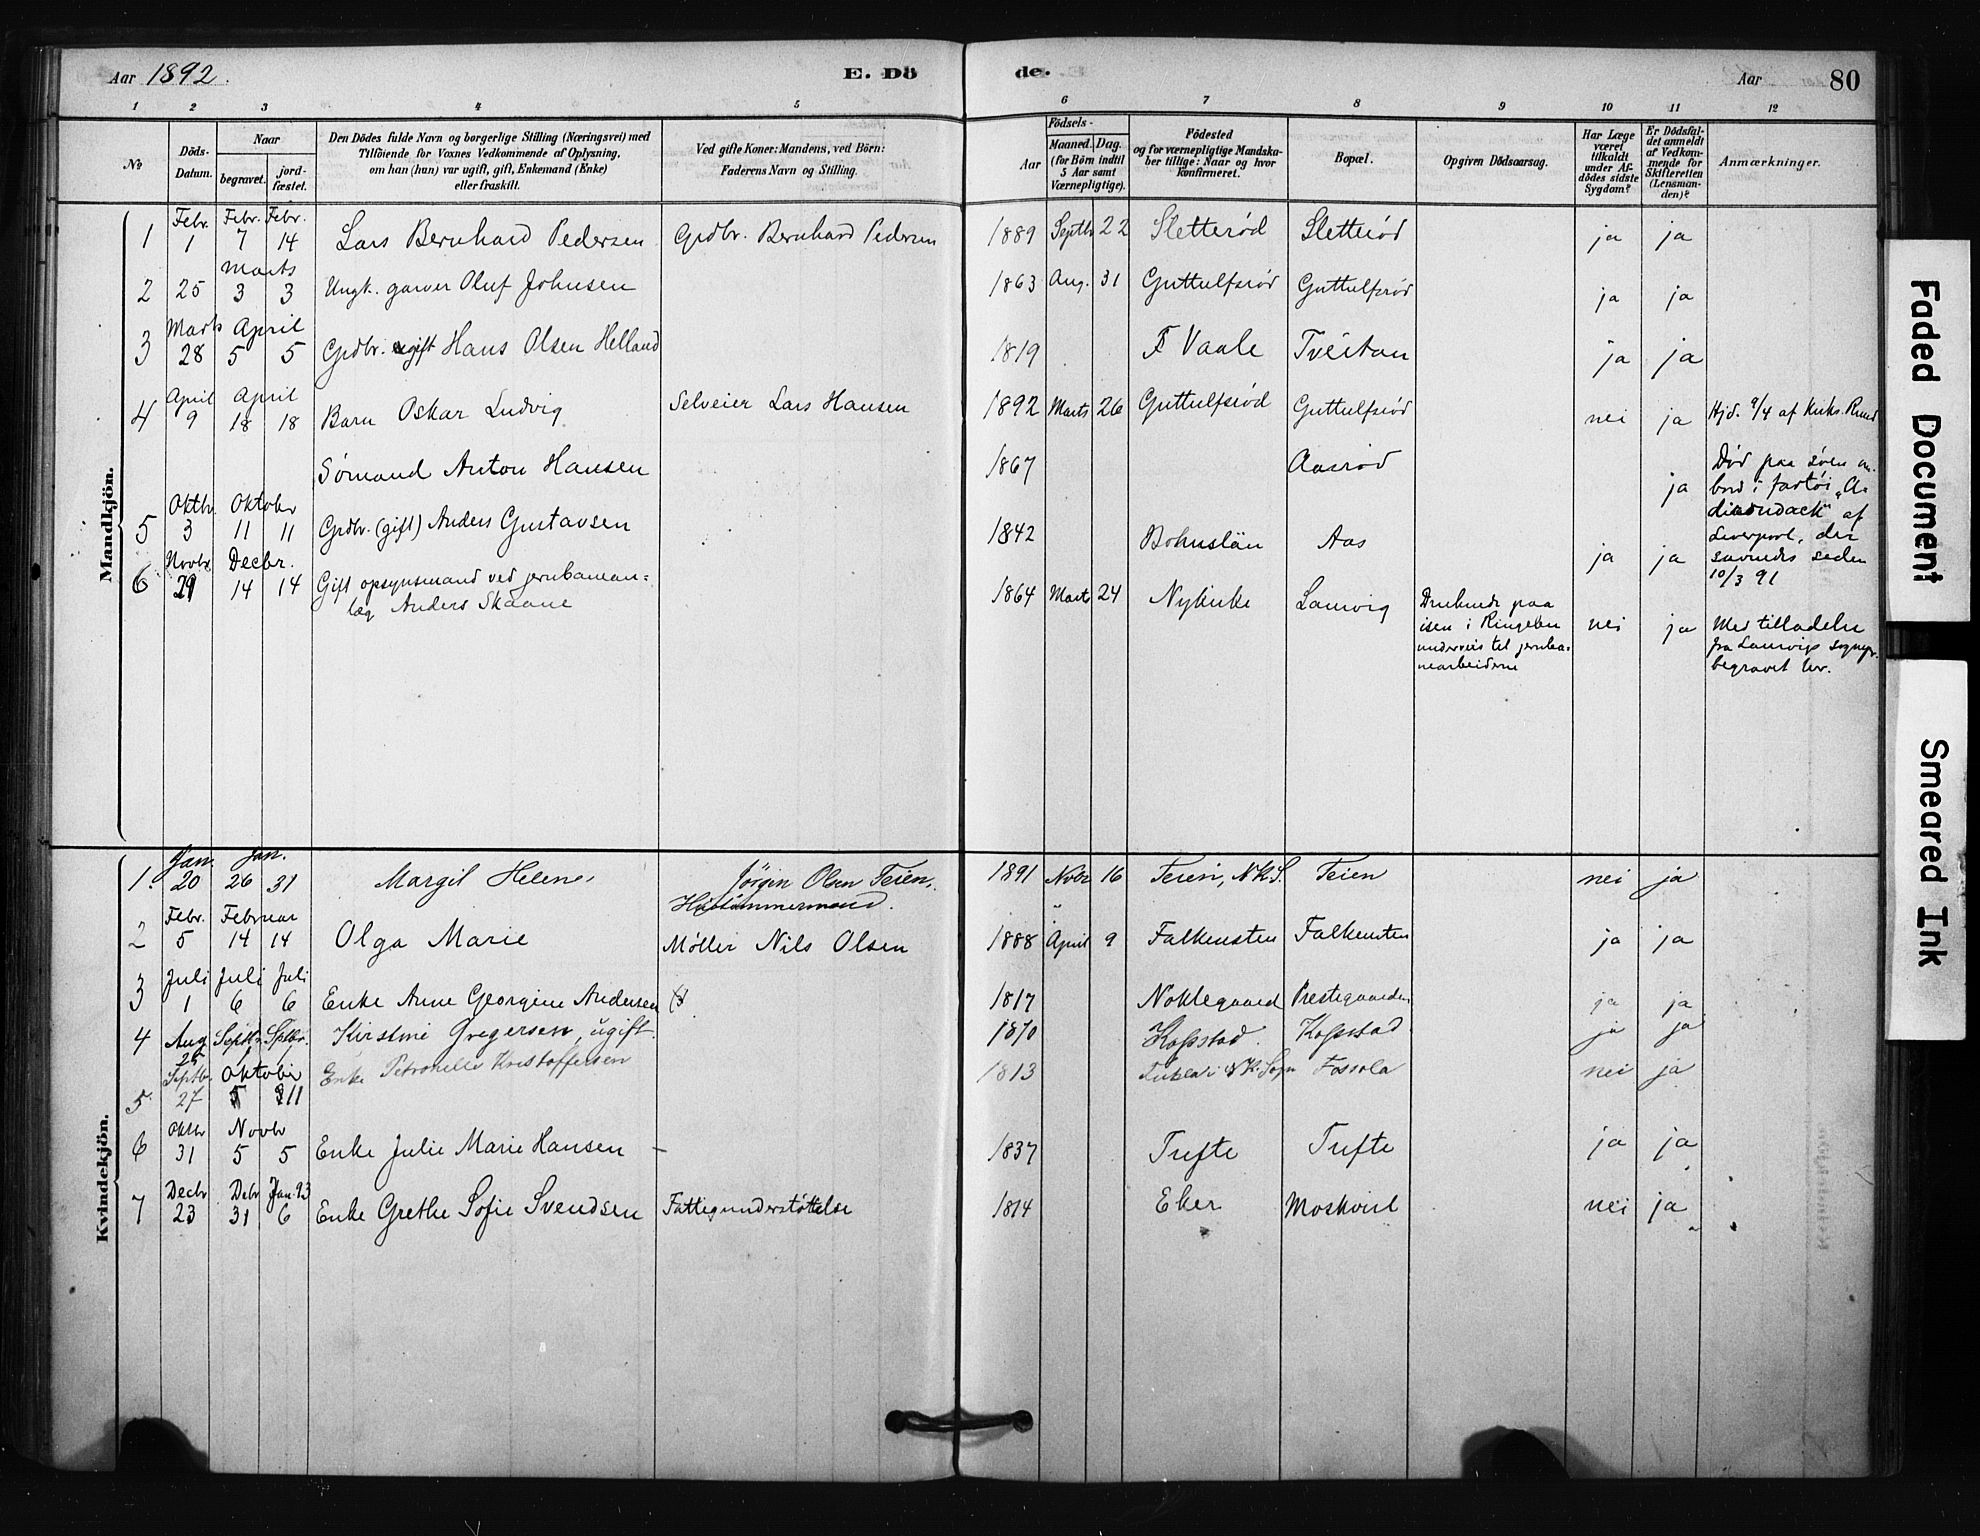 Aar 1892. E. Dö de. Aar 80
1 2 3 4 5 6 7 8 9 10 11 12
No
Döds-
Datum.
Naar
begravet.
jord-
fæstet.
Den Dödes fulde Navn og borgerlige Stilling (Næringsvei) med
Tilföiende for Voxnes Vedkommende af Oplysning,
om han (hun) var ugift, gift, Enkemand (Enke)
eller fraskilt.
Ved gifte Koner: Mandens, ved Börn:
Faderens Navn og Stilling.
Födsels-
Aar
Maaned. Dag.
(for Börn indtil
5 Aar samt
Værnepligtige).
Födested
og for værnepligtige Mandska-
ber tillige: Naar og hvor
konfirmeret.
Bopæl.
Opgiven Dödsaarsag.
Har Læge
været
tilkaldt
under Af-
dödes sidste
Sygdom?
Er Dödsfal-
det anmeldt
af Vedkom-
mende for
Skifteretten
(Lensman-
den)?
Anmærkninger.
Mandkjön.
Febr. Febr. Febr.
1 1 7 14 Lars Bernhard Pedersen Grdbr. Bernhard Pedersen 1889 Septbr 22 Sletterød Sletterød ja ja
Marts
2 25 3 3 Ungk. garver Oluf Johnsen 1863 Aug. 31 Guttulfsrød Guttulfsrød ja ja
Marts April
3 28 5 5 Grdbr. gift Hans Olsen Helland 1819 Vaale Tveitan ja ja
April April
4 9 18 18 Barn Oskar Ludvig Selveier Lars Hansen 1892 Marts 26 Guttulfsrød Guttulfsrød nei ja Hjd. 9/4 af Kirks. Ruud
Sømand Anton Hansen 1867 Aasrød ja
Død paa søen om-
bord i fartøi "A-
dirondack" af
Liverpool, der
savnedes siden
10/3 91
Oktbr. Oktober
5 3 11 11 Grdbr. (gift) Anders Gustavsen 1842 Bohuslän Aas ja ja
Novbr Decbr.
6 29 14 14 Gift opsynsmand ved jernbanean=
læg Anders Skaane 1864 Marts 24 Nykirke Laurvig
Druknede paa
isen i Ringebu
underveis til jernba-
nearbeiderne
nei ja
Med tilladelse
fra Laurvigs sognepr.
begravet her.
Kvindekjön.
Jan. Jan.
1. 20 26 31 Margit Helene, Jørgen Olsen Teien,
Hustømmermand. 1891 Novbr 16 Teien, N.K.S. Teien nei ja
Febr. Februar
2 5 14 14 Olga Marie Møller Nils Olsen 1888 April 9 Falkensten Falkensten ja ja
Juli Juli Juli
3 1 6 6 Enke Anne Georgine Andersen 1817 Noklegaard Prestegaarden ja ja
4 Aug Septbr. Sptbr. Kirstine Gregersen, ugift. 1870 Kopstad. Kopstad ja ja
25
Septbr. Oktober Enke Petronelle Kristoffersen 1813 i N.K. Sogn Fossola nei ja
5 27 11
Oktbr Novbr
6 31 5 5 Enke Julie Marie Hansen – 1837 Tufte Tufte ja ja
Decbr Debr Jan. 93
7 23 31 6 Enke Grethe Sofie Svendsen Fattigunderstøttelse 1814 Eker Moskvil nei ja
Faded Document
Smeared Ink